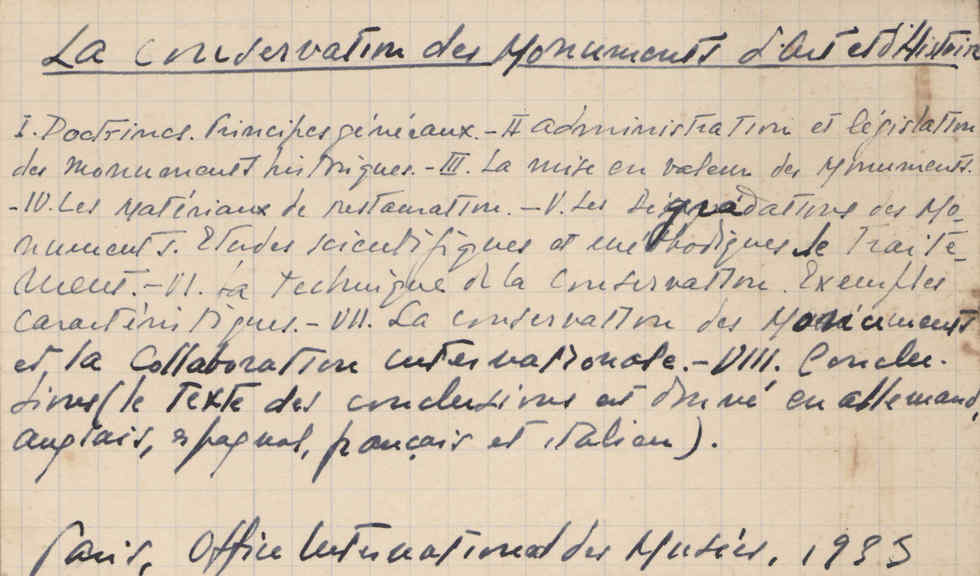 La Conservation des Monuments d'Art et d'Histoire
I. Doctrines. Principes généraux. - II administration et législation
des Monuments historiques. - III. La mise en valeur des Monuments.
- IV. Les Matériaux de restauration. - V. Les Dégradations des Mo-
numents. Etudes scientifiques et méthodiques de Traite-
ment. - VI. La Technique de la Conservation. Exemples
caractéristiques. - VII. La conservation des Monuments
et la Collaboration internationale. - VIII. Conclu-
sions (le texte des conclusions est donné en allemand,
anglais, espagnol, français et italien).
Paris, Office International des Musées, 1933